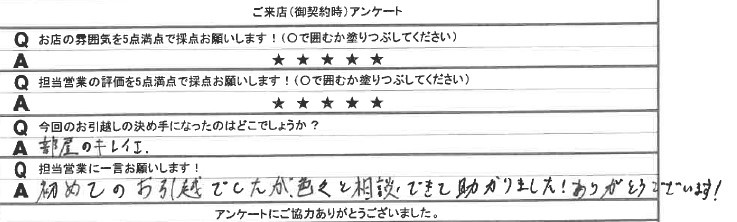 ご来店(御契約時)アンケート
Q お店の雰囲気を5点満点で採点お願いします!(〇で囲むか塗りつぶしてください)
A ★ ★ ★ ★ ★
Q 担当営業の評価を5点満点で採点お願いします!(〇で囲むか塗りつぶしてください)
A ★ ★ ★ ★ ★
Q 今回のお引越しの決め手になったのはどこでしょうか?
A 部屋のキレイエ.
Q 担当営業に一言お願いします!
A 初めてのお引越でしたが色々と相談できて助かりました!ありがとうございます!
アンケートにご協力ありがとうございました。